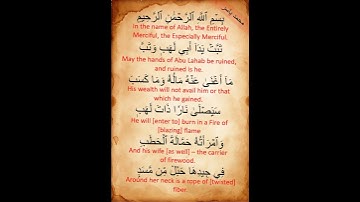 بِسْمِ ٱللَّهِ ٱلرَّحْمَٰنِ ٱلرَّحِيمِ
In the name of Allah, the Entirely
Merciful, the Especially Merciful.
تَبَّتْ يَدَآ أَبِى لَهَبٍ وَتَبَّ
May the hands of Abu Lahab be ruined,
and ruined is he.
مَآ أَغْنَىٰ عَنْهُ مَالُهُۥ وَمَا كَسَبَ
His wealth will not avail him or that
which he gained.
سَيَصْلَىٰ نَارًا ذَاتَ لَهَبٍ
He will [enter to] burn in a Fire of
[blazing] flame
وَٱمْرَأَتُهُۥ حَمَّالَةَ ٱلْحَطَبِ
And his wife [as well] – the carrier
of firewood.
فِى جِيدِهَا حَبْلٌ مِّن مَّسَدٍۭ
Around her neck is a rope of [twisted]
fiber.